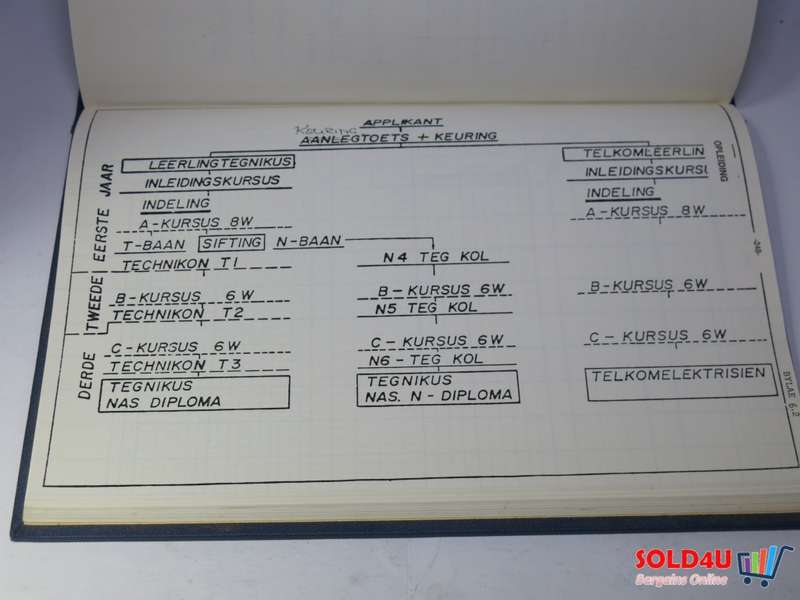 APPLIKANT
Keuring
AANLEGTOETS + KEURING
LEERLINGTEGNIKUS
INLEIDINGSKURSUS
INDELING
A-KURSUS 8W
T-BAAN SIFTING N-BAAN
TECHNIKON T1
B-KURSUS 6W
TECHNIKON T2
C-KURSUS 6W
TECHNIKON T3
TEGNIKUS
NAS DIPLOMA
N4 TEG KOL
B-KURSUS 6W
N5 TEG KOL
C-KURSUS 6W
N6-TEG KOL
TEGNIKUS
NAS. N-DIPLOMA
TELKOMLEERLIN
INLEIDINGSKURSU
INDELING
A-KURSUS 8W
B-KURSUS 6W
C-KURSUS 6W
TELKOMELEKTRISIEN
EERSTE JAAR
TWEEDE
DERDE
OPLEIDING
BYLAE 6.2
SOLD4U
Bargains Online